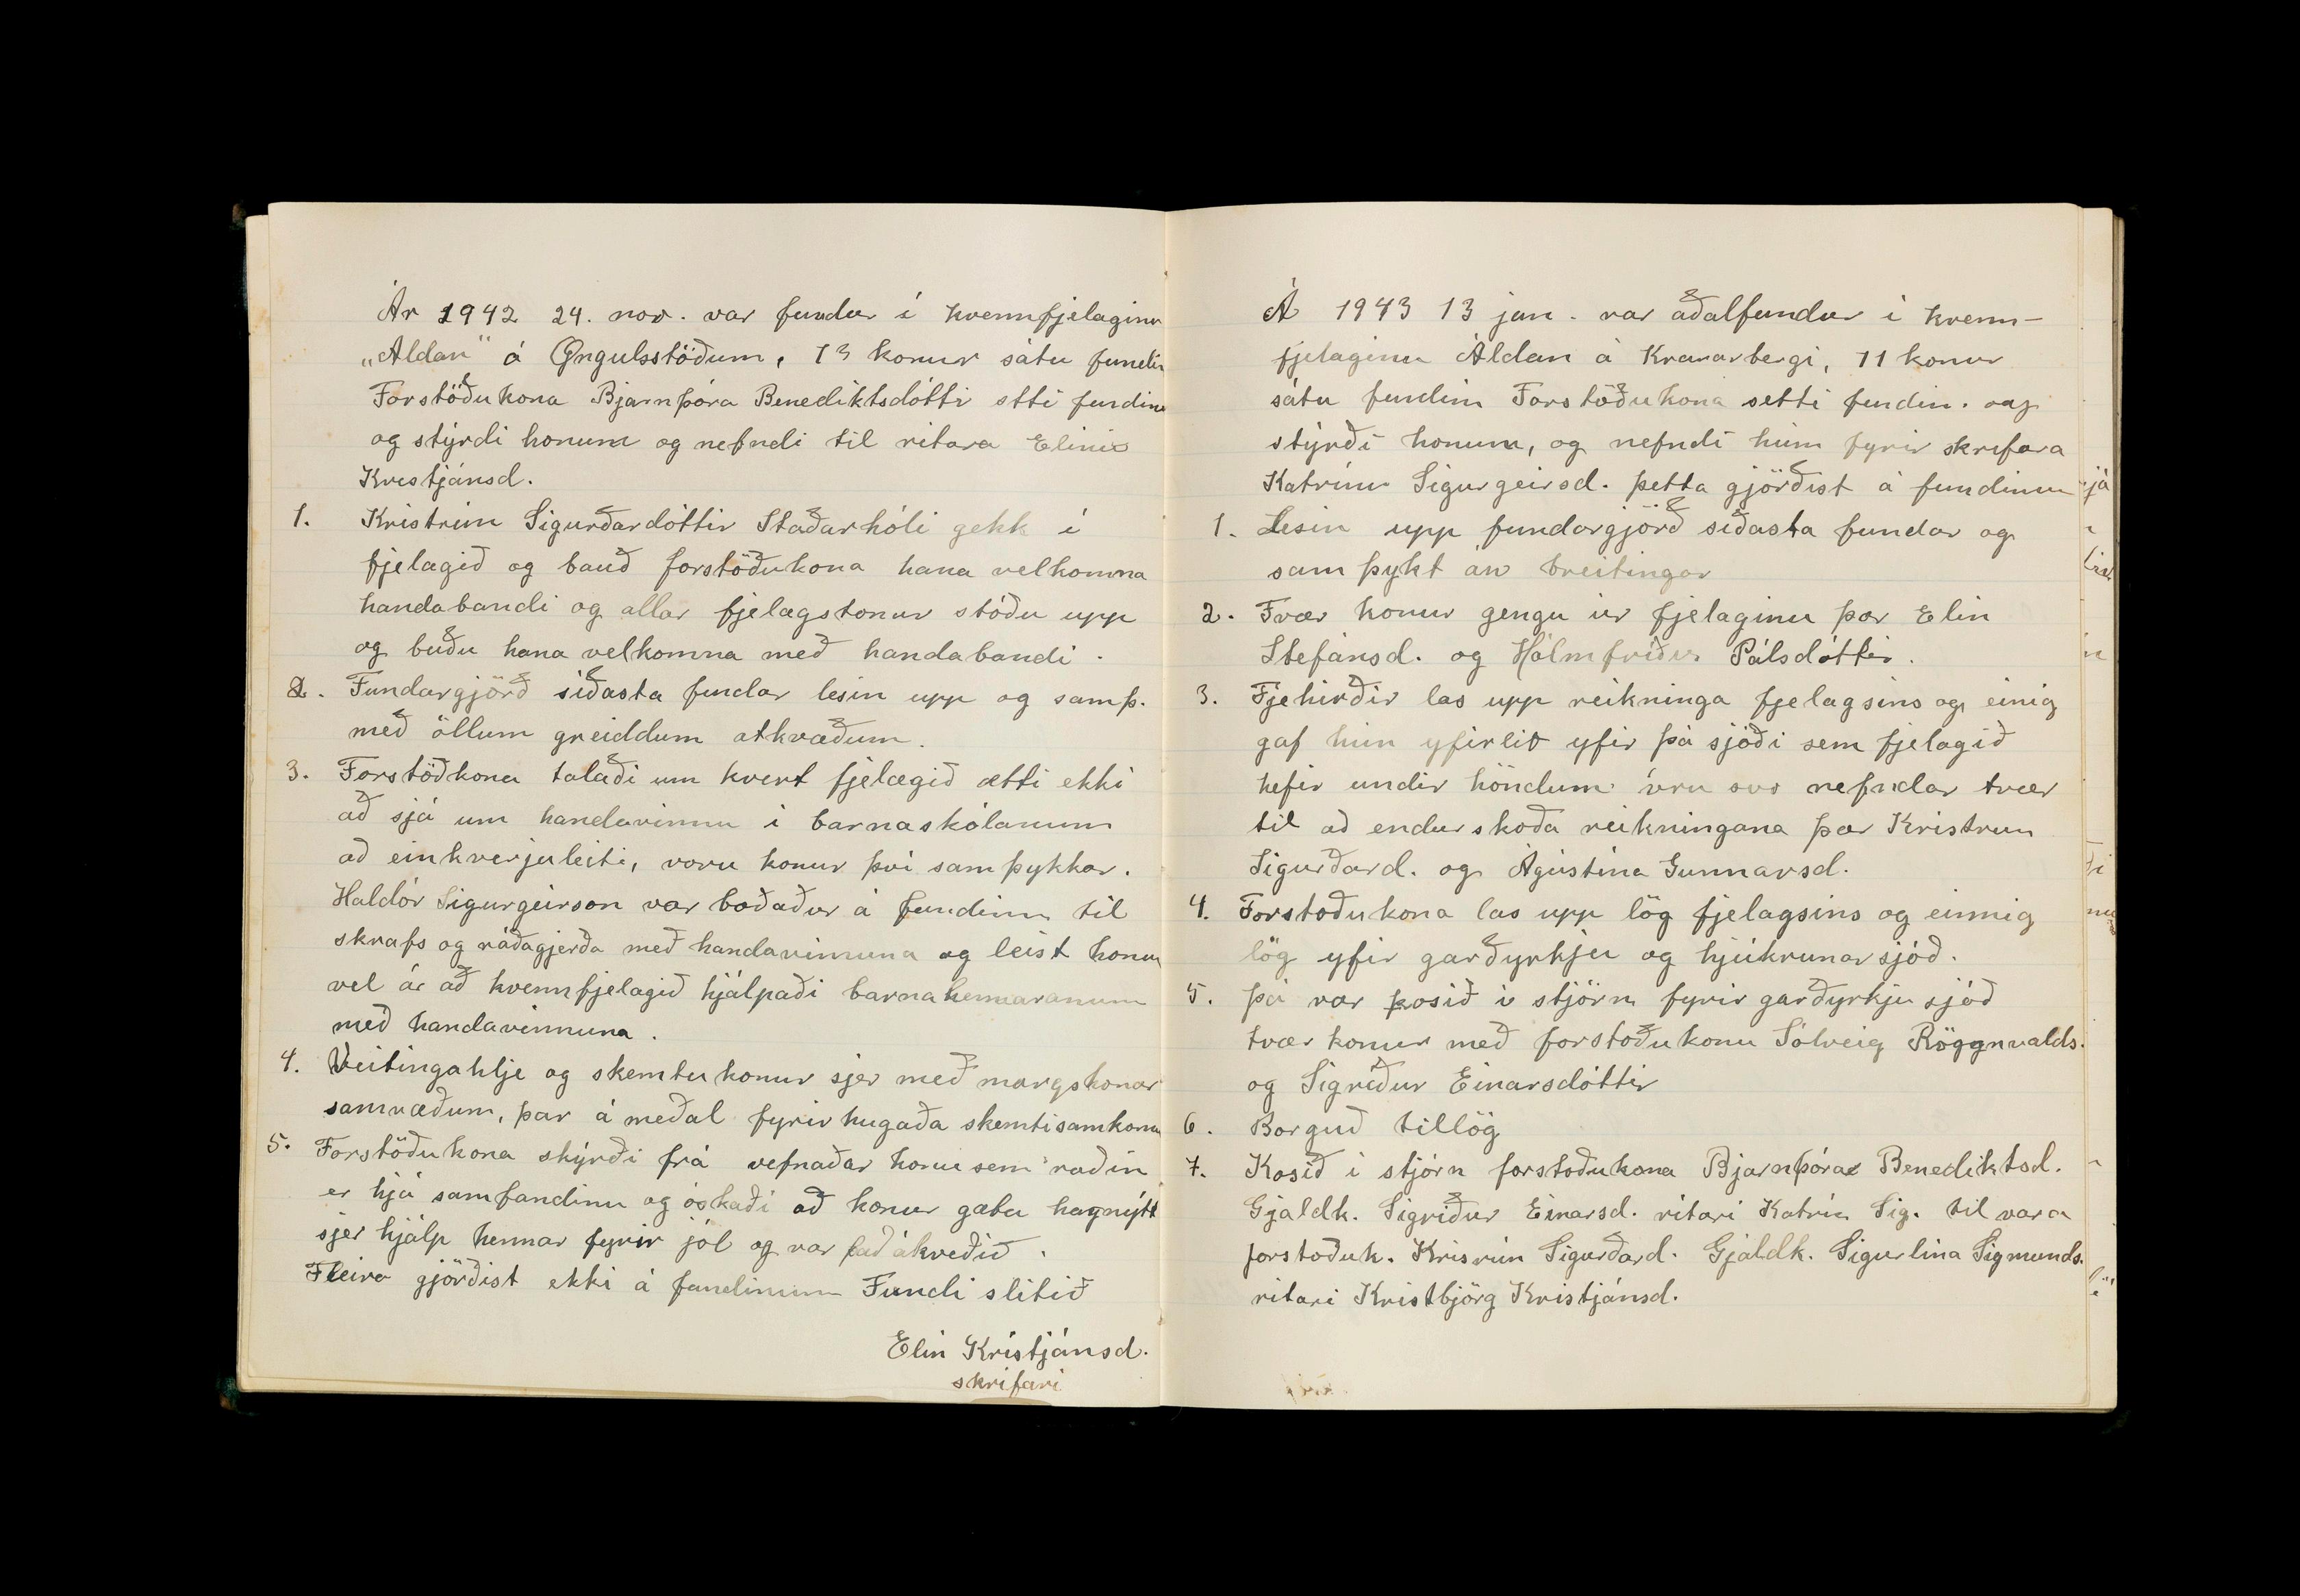 Ár 1942 24. nov. var fundur í kvennfjelaginu
„Aldan" á Öngulsstöðum, 13 konur sátu fundin
Forstöðukona Bjarnþóra Benediktsdóttir stti fundinn
og stýrdi honum og nefndi til ritara Elinu
Kristjánsd.
1. Kristrún Sigurðardóttir Staðarhóli gekk í
fjelagið og bauð forstöðukona hana velkomna
handabandi og allar fjelagskonur stóðu upp
og buðu hana velkomna með handabandi.
2. Fundargjörð síðasta fundar lesin upp og samþ.
með öllum greiddum atkvæðum.
3. Forstöðkona talaði um hvert fjelagið ætti ekki
að sjá um handavinnu í barnaskólanum
að einhverjuleiti, voru konur því samþykkar.
Haldór Sigurgeirson var boðaður á fundinn til
skrafs og ráðagjerða með handavinnuna og leist honum
vel á að kvennfjelagið hjálpaði barnakennaranum
með handavinnuna.
4. Veitingahlje og skemtu konur sjer með margskonar
samræðum, þar á meðal fyrirhugaða skemtisamkomu
5. Forstöðukona skýrði frá vefnaðar konu sem raðin
er hjá sambandinu og óskaði að konur gætu hagnýtt
sjer hjálp hennar fyrir jól og var það ákveðið.
Fleira gjörðist ekki á fundinum Fundi slitið
Elin Kristjánsd.
skrifari
Á 1943 13 jan. var aðalfundur í kvenn-
fjelaginu Aldan á Kravarbergi, 11 konur
sátu fundin Forstöðukona setti fundin. og
stýrði honum, og nefndi hún fyrir skrifara
Katrínu Sigurgeirsd. þetta gjörðist á fundinum
1. Lesin upp fundargjörð síðasta fundar og
samþykt án breitingar
2. Tvær konur gengu úr fjelaginu þær Elin
Stefánsd. og Hólmfríður Pálsdóttir.
3. Fjehirðir las upp reikninga fjelagsins og einig
gaf hún yfirlit yfir þá sjóði sem fjelagið
hefir undir höndum vru svo nefndar tvær
til að endurskoða reikningana þær Kristrun
Sigurðard. og Ágústína Gunnarsd.
4. Forstoðukona las upp lög fjelagsins og einnig
lög yfir garðyrkju og hjúkrunarsjóð.
5. þá var kosið í stjórn fyrir garðyrkju sjóð
tvær konur með forstoðukonu Sólveig Röggnvalds.
og Sigríður Einarsdóttir
6. Borguð tillög
7. Kosið í stjórn forstoðukona Bjarnþóra Benediktsd.
Gjaldk. Sigríður Einarsd. ritari Katrín Sig. til vara
forstoðuk. Krisrún Sigurðard. Gjaldk. Sigurlina Sigmunds.
ritari Kristbjörg Kristjánsd.